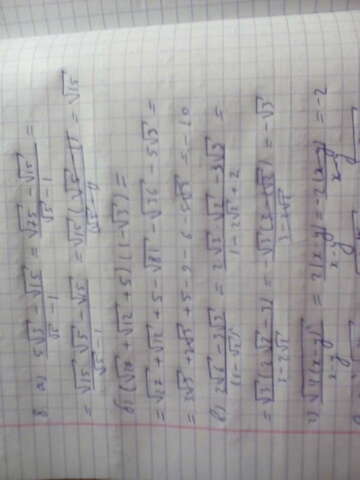 8 а) (5√3 − √15)/(√5 − 1) = (√75 − √15)/(√5 − 1) =
= (√15 √5 − √15)/(√5 − 1) = √15(√5 − 1)/(√5 − 1) = √15
б) (√27 + √12 + 5)(1 − √3) =
= √27 + √12 + 5 − √81 − √36 − 5√3 =
= 3√3 + 2√3 + 5 − 9 − 6 − 5√3 = −10
в) (2√6 − 3√3)/(1 − √2)² = (2√3 · √2 − 3√3)/(1 − 2√2 + 2) =
= √3(2√2 − 3)/(3 − 2√2) = −√3(3 − 2√2)/(3 − 2√2) = −√3
г) √4(x − y)²/(x − y) = 2|x − y|/(x − y) = −2(x − y)/(x − y) = −2